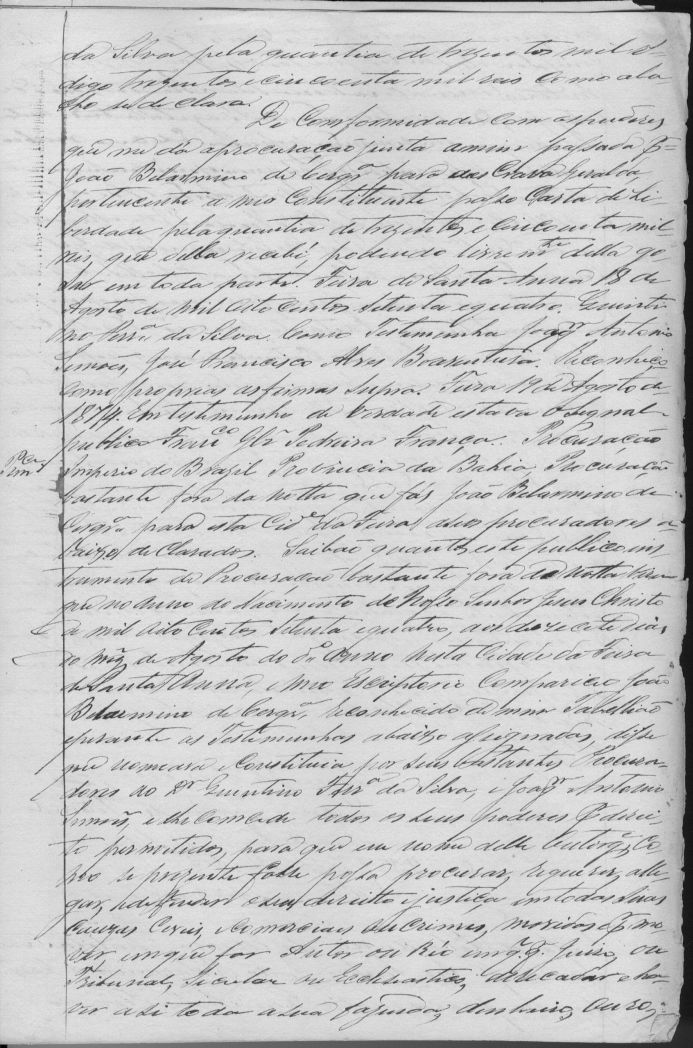 da Silva pela quantia de trezentos mil e
digo trezentos e cincoenta mil reis como aba
cho se declara.
De Comformidade com os poderes
que me dá a procuração junta a mim passada p
João Belarmino de Cerqra para a escrava Geralda
pertencente a meo Constituinte passo Carta de Li
berdade pela quantia de trezentos e cincoenta mil
reis, que della recebi, podendo livremte della go
sar em toda parte. Feira de Santa Anna 18 de
Agosto de mil oito centos setenta e quatro. Quinti
no Ferra da Silva. Como Testemunha Joaqm Antonio
Simões, José Francisco Alves Boaventura. Reconheço
como proprias as firmas supra. Feira 19 de Agosto de
1874. Em testemunho de verdade estava o signal
publico Franco Glz Pedreira França. Procuração
Imperio do Brazil Provincia da Bahia Procuração
bastante fora da notta que fás João Belarmino de
Cerqra para esta Cide da Feira a seus procuradores a
baixo declarados. Saibão quantos este publico ins
trumento de Procuração bastante fora de notta virem
que no Anno do Nacimento de Nosso Senhor Jesus Christo
de mil oito centos setenta e quatro, aos dezecete dias
do mez de Agosto do do Anno nesta Cidade da Feira
de Santa Anna, e meo Escriptorio compareceo João
Belarmino de Cerqra, reconhecido de mim Tabellião
e perante as Testemunhas abaixo assignadas, disse
que nomeava e Constituia por seus bastantes Procura
dores ao Dr Quintino Ferra da Silva, e Joaqm Antonio
Simões, e lhe concede todos os seus poderes p direi
to permitidos, para que em nome delle Outorge, Co
mo se prezente fosse possa procurar, requerer, alle
gar, e defender o seu direito e justiça em todas suas
cauzas Civeis, e Comerciaes ou crimes, movidas e p mo
ver em que for Autor ou Réo em q.q. Juizo, ou
Tribunal, Sicular ou Ecclesiastico, arrecadar e ha
ver a si toda a sua fazenda, dinheiro, ouro,